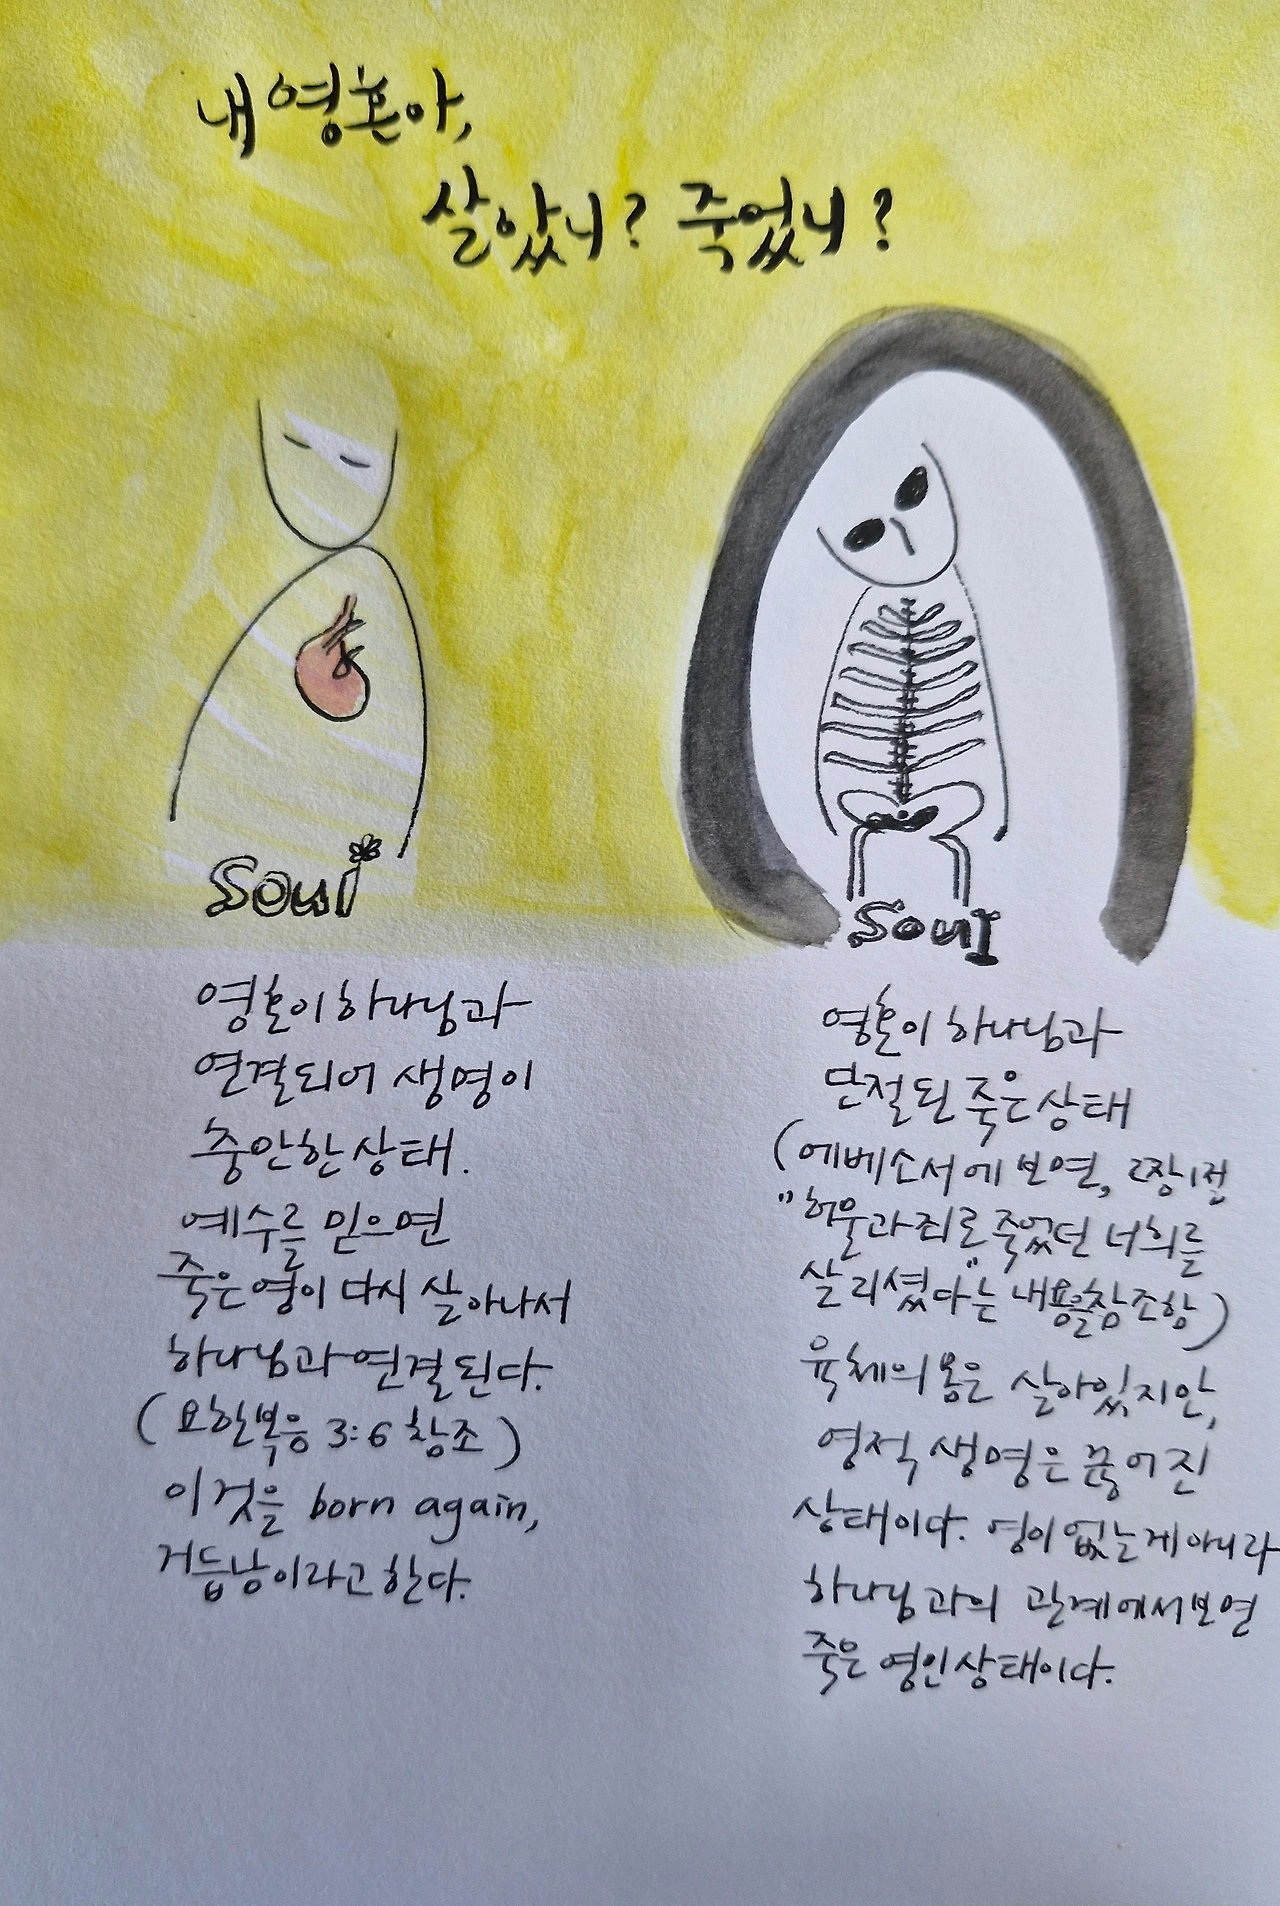 내 영혼아,
살았니? 죽었니?
soul
영혼이 하나님과
연결되어 생명이
충만한 상태.
예수를 믿으면
죽은 영이 다시 살아나서
하나님과 연결된다.
(요한복음 3:6 참조)
이것을 born again,
거듭남이라고 한다.
soul
영혼이 하나님과
단절된 죽은 상태
(에베소서에 보면, 2장1절
"허물과 죄로 죽었던 너희를
살리셨다"는 내용을 참조함)
육체의 몸은 살아있지만,
영적 생명은 끊어진
상태이다. 영이 없는게 아니라
하나님과의 관계에서보면
죽은 영인 상태이다.